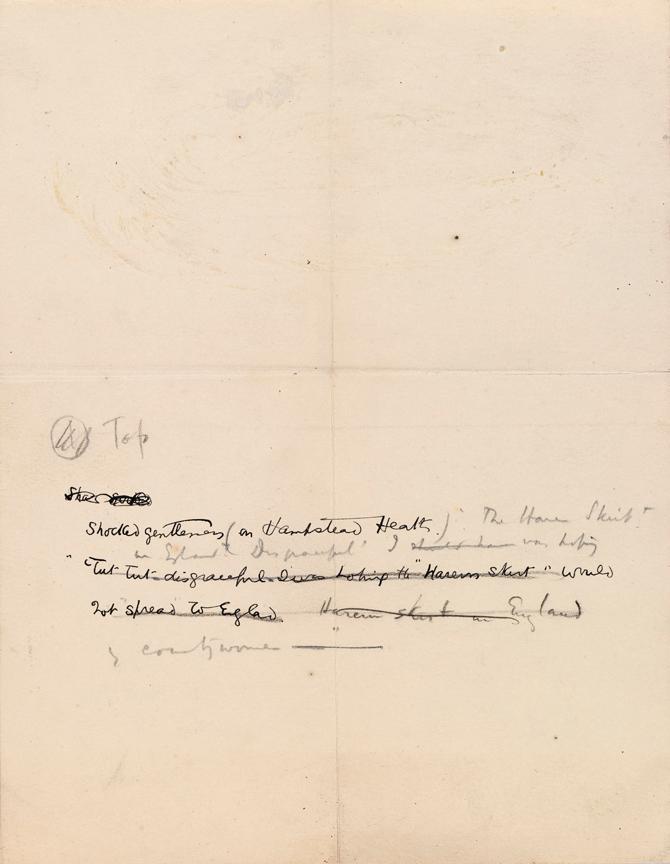 Top
Shocked gentleman (on Hampstead Heath.) "The Harem Skirt"
in England! Disgraceful! I should have was hoping
"Tut Tut disgraceful I was hoping th "Harem Skirt" would
not spread to England. Harem skirt in England
countrywomen